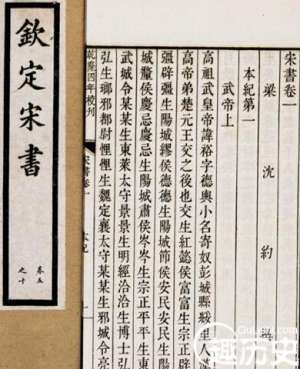 宋書卷一
梁 沈約
本紀第一
武帝上
高祖武皇帝諱裕字德輿小名寄奴彭城縣綏里人漢
高帝弟楚元王交之後也交生紅懿侯富富生宗正辟
彊辟彊生陽城繆侯德德生陽城節侯安民安民生陽
城釐侯慶忌慶忌生陽城肅侯岑岑生宗正平平生東
武城令某某生東萊太守景景生明經洽洽生博士弘
弘生瑯邪都尉悝悝生魏定襄太守某某生邪城令亮
乾隆四年校刊 宋書卷一 本紀
欽定宋書
卷五
之十
Qulishi.com
趣历史